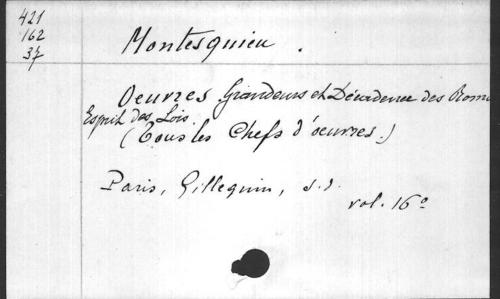 421
162
37
Montesquieu.
Oeuvres Grandeurs et Décadence des Rom
Esprit des Lois.
(Tous les Chefs d'oeuvres.)
Paris, Gillequin, s.d.
vol. 16°